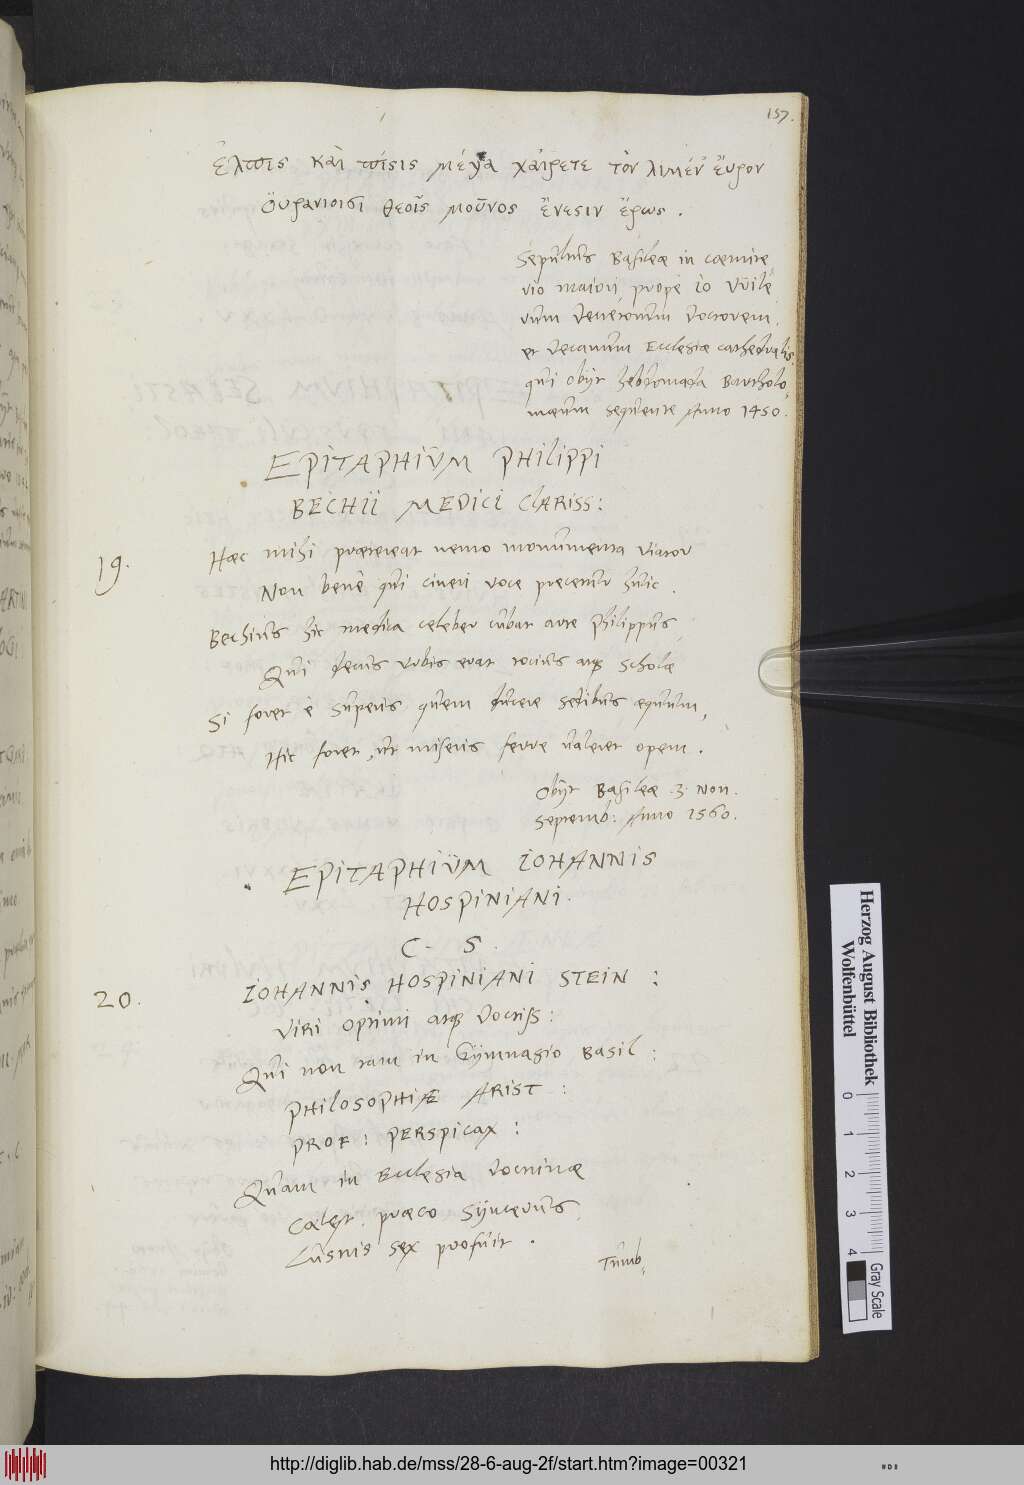 157.
ἐλπὶς καὶ πίσις μέγα χαίρετε τὸν λιμέν' εὗρον
Οὐρανιοισι θεοῖς μοῦνος ἔνεσιν ἔρως.
Sepultus Basileæ in cœmite
rio maiori prope Io
et decanum Ecclesiæ cathedralis
qui obijt hebdomada Bartholo
mæum sequente Anno 1450.
EPITAPHIUM PHILIPPI
BECHII MEDICI CLARISS:
19.
Hæc mihi prætereat nemo monumenta viator
Non benè qui cineri voce precetur huic.
Bechius hic medica celeber cubat arte Philippus,
Qui decus urbis erat totius atq; scholæ
Si foret è superis quem ducere sedibus æquum,
Hic foret, ut miseris ferre valeret opem.
Obijt Basileæ .3. Non.
Septemb: Anno 1560.
EPITAPHIUM IOHANNIS
HOSPINIANI.
C. S.
20.
IOHANNIS HOSPINIANI STEIN:
VIRI optimi atq; doctiss:
Qui non tam in Gymnasio Basil:
PHILOSOPHIÆ ARIST:
PROF: PERSPICAX:
Quam in Ecclesia doctrinæ
Cælest. præco syncerus
Lustris sex profuit.
Tumb,
Herzog August Bibliothek
Wolfenbüttel
0 1 2 3 4
Gray Scale
http://diglib.hab.de/mss/28-6-aug-2f/start.htm?image=00321